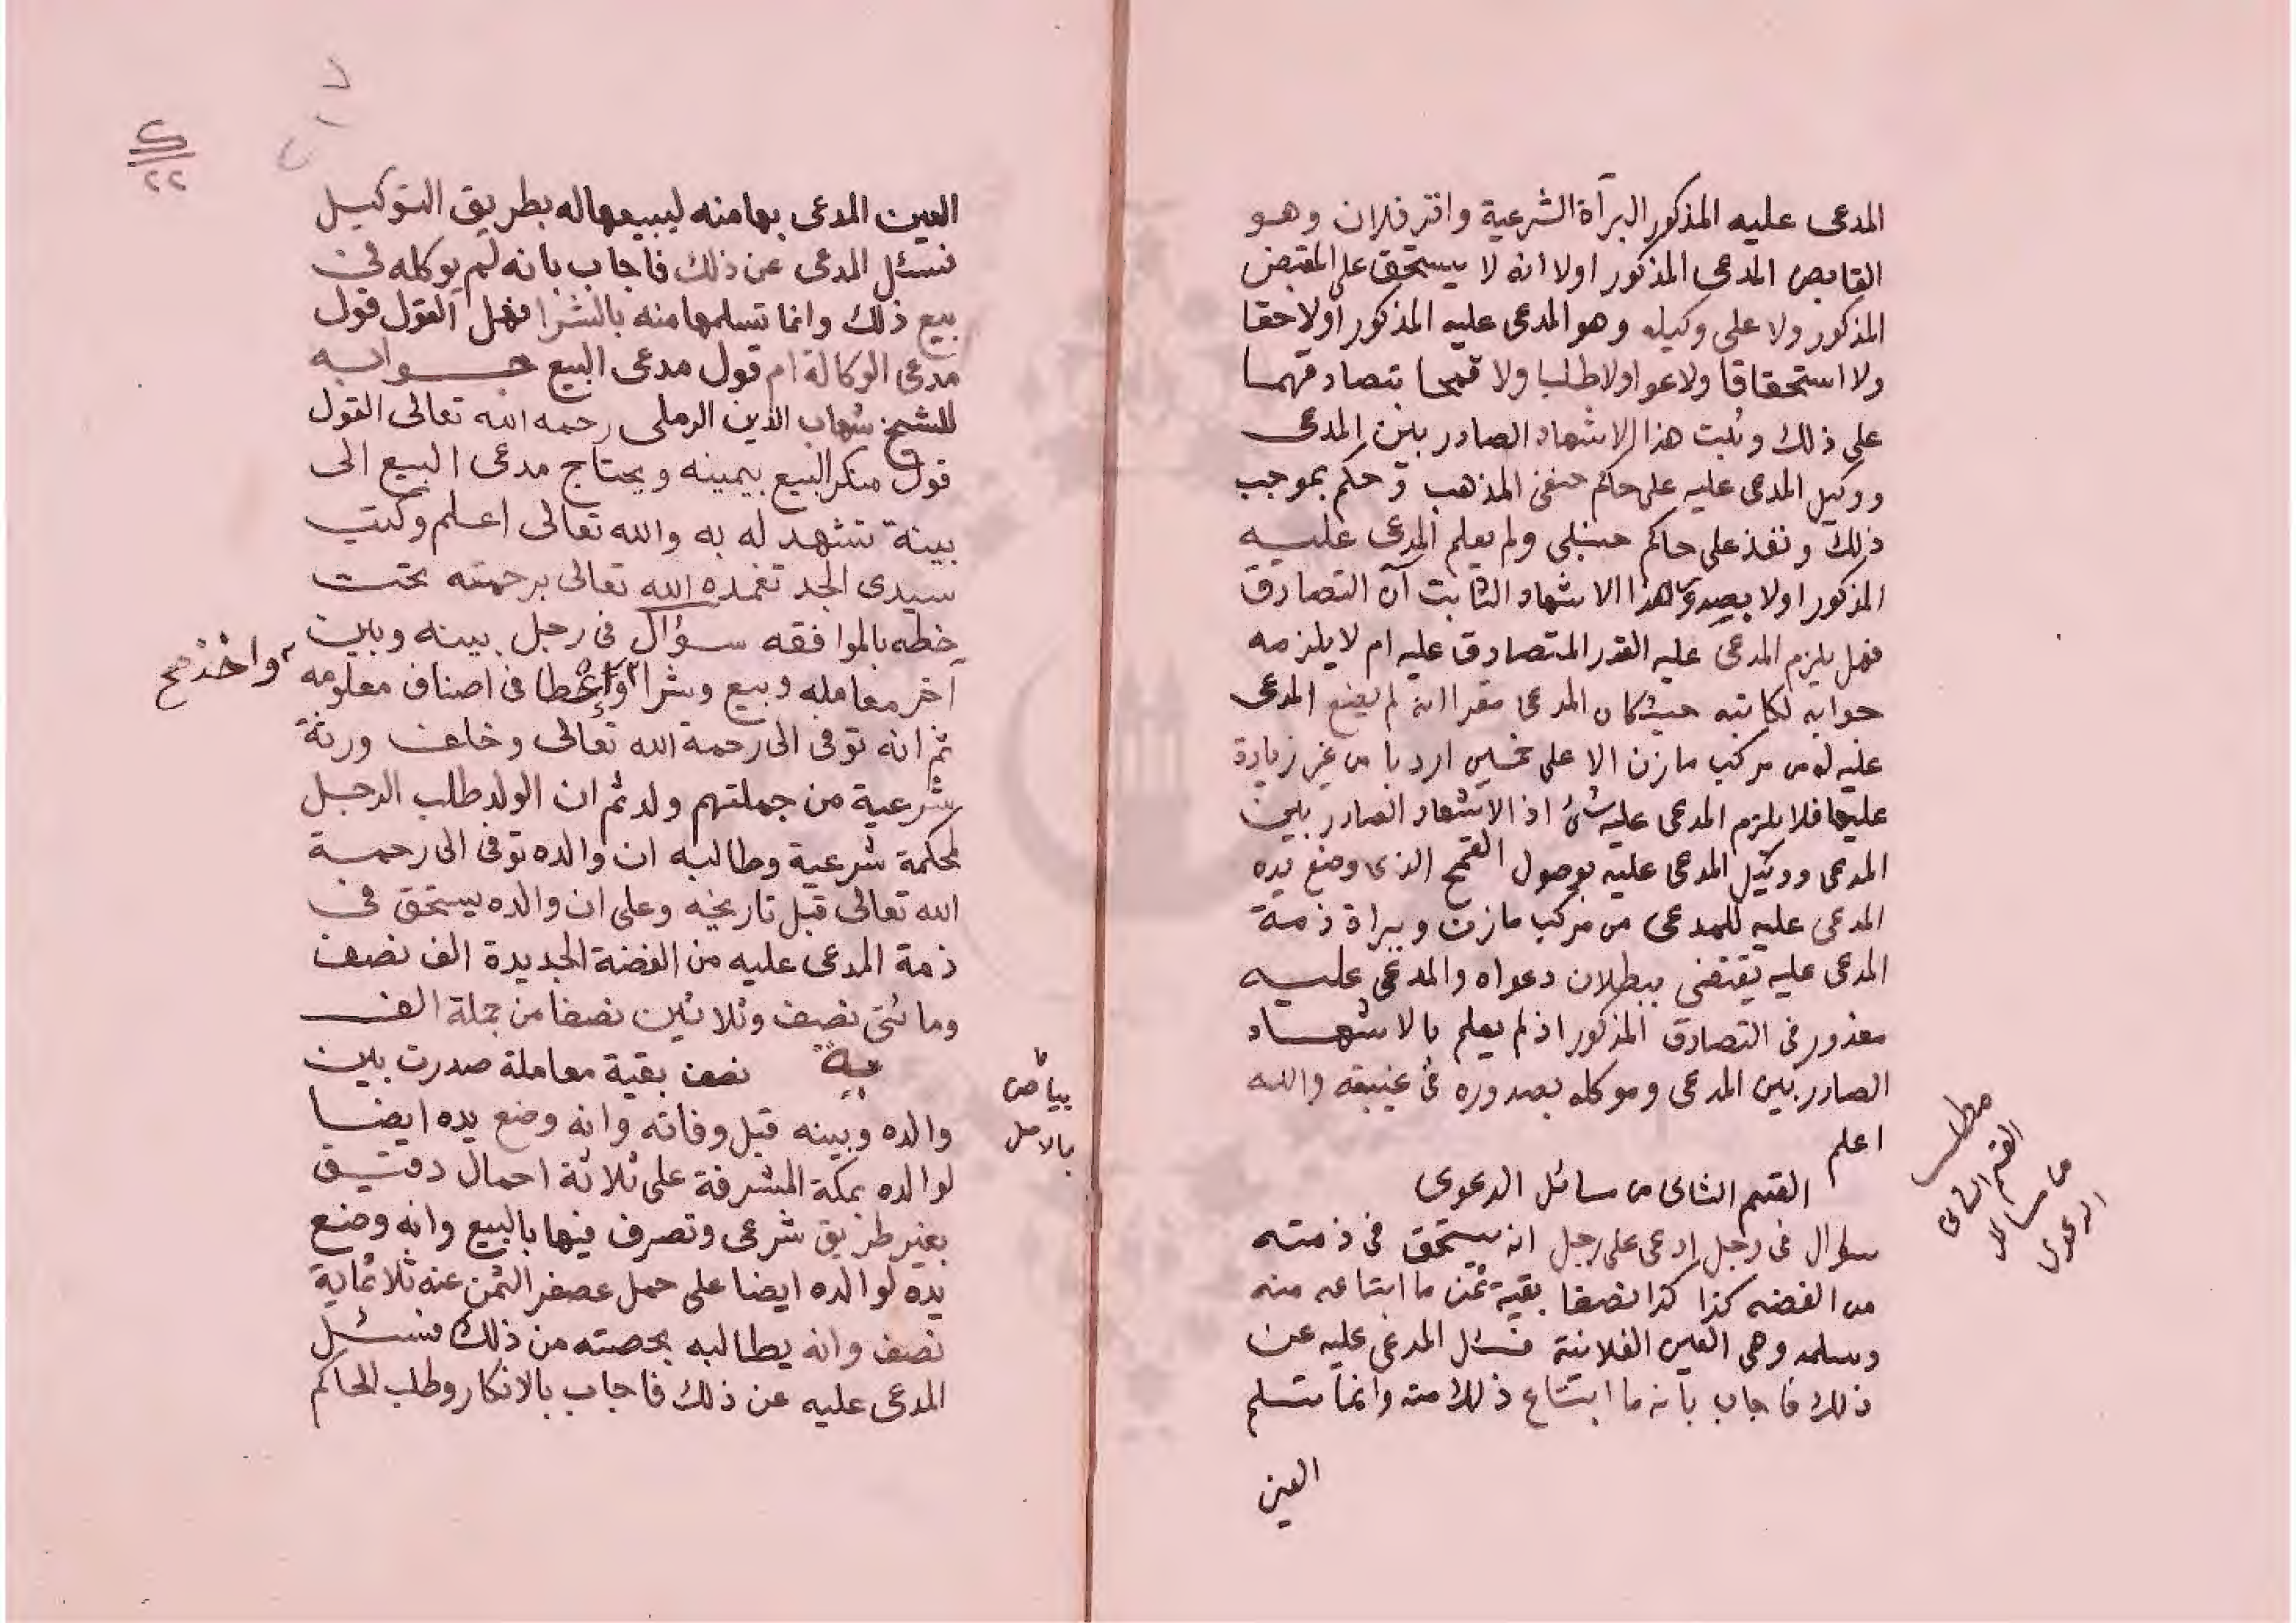 المدعى عليه المذكور البرآة الشرعية واقر فلان وهو
القابص المدعى المذكور اولا انه لا يستحق على المقبض
المذكور ولا على وكيله وهو المدعى عليه المذكور اولا حقا
ولا استحقاقا ولا عوا ولا طلبا ولا قمحا بتصادقهما
على ذلك وثبت هذا الاشهاد الصادر بين المدعى
ووكيل المدعى عليه على حاكم حنفى المذهب وحكم بموجب
ذلك ونفذ على حاكم حنبلى ولم يعلم المدعى عليه
المذكور اولا بصدور هذا الاشهاد الثابت آن التصادق
فهل يلزم المدعى عليه القدر المتصادق عليه ام لا يلزمه
جوابه لكاتبه حيث كان المدعى مقرا انه لم يضع المدعى
عليه له من مركب مازن الا على خمسين اردبا من غير زيادة
عليها فلا يلزم المدعى عليه شئ اذ الاشهاد الصادر بين
المدعى ووكيل المدعى عليه بوصول القمح الذى وضع يده
المدعى عليه للمدعى من مركب مازن وبراة ذمة
المدعى عليه يقتضى ببطلان دعواه والمدعى عليه
معذور فى التصادق المذكور اذ لم يعلم بالاشهاد
الصادر بين المدعى وموكله بصدوره فى غيبته والله
اعلم
القسم الثانى من مسائل الدعوى
مطلب
القسم الثانى
من مسائل
الدعوى
سؤال فى رجل ادعى على رجل انه يستحق فى ذمته
من الفضه كذا كذا نصفا بقية ثمن ما ابتاعه منه
وسلمه وهى العين الفلانية فسئل المدعى عليه عن
ذلك فاجاب بانه ما ابتاع ذلك منه وانما تسلم
العين
٢٢
العين المدعى بها منه ليبيعها له بطريق التوكيل
فسئل المدعى عن ذلك فاجاب بانه لم يوكله فى
بيع ذلك وانما تسلمها منه بالشرا فهل القول قول
مدعى الوكالة ام قول مدعى البيع جوابه
للشيخ شهاب الدين الرملى رحمه الله تعالى القول
قول منكر البيع بيمينه ويحتاج مدعى البيع الى
بينة تشهد له به والله تعالى اعلم وكتب
سيدى الجد تغمده الله تعالى برحمته تحت
خطه بالموافقه سؤال فى رجل بينه وبين
آخر معامله وبيع وشرا واعطا فى اصناف معلومه
واخذ صح
ثم انه توفى الى رحمة الله تعالى وخلف ورثة
شرعية من جملتهم ولد ثم ان الولد طلب الرجل
لمحكمة شرعية وطالبه ان والده توفى الى رحمة
الله تعالى قبل تاريخه وعلى ان والده يستحق فى
ذمة المدعى عليه من الفضة الجديدة الف نصف
ومائتى نصف وثلاثين نصفا من جملة الف
نصف بقية معاملة صدرت بين
بياض
بالاصل
والده وبينه قبل وفاته وانه وضع يده ايضا
لوالده بمكة المشرفة على ثلاثة احمال دقيق
بغير طريق شرعى وتصرف فيها بالبيع وانه وضع
يده لوالده ايضا على حمل عصفر الثمن عنه ثلاثماية
نصف وانه يطالبه بحصته من ذلك فسئل
المدعى عليه عن ذلك فاجاب بالانكار وطلب الحاكم